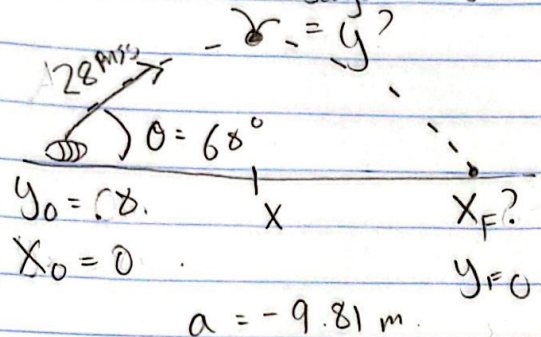 = y?
28 m/s
θ = 68°
y₀ = 0.
X
X_F?
X₀ = 0
y_F = 0
a = -9.81 m.